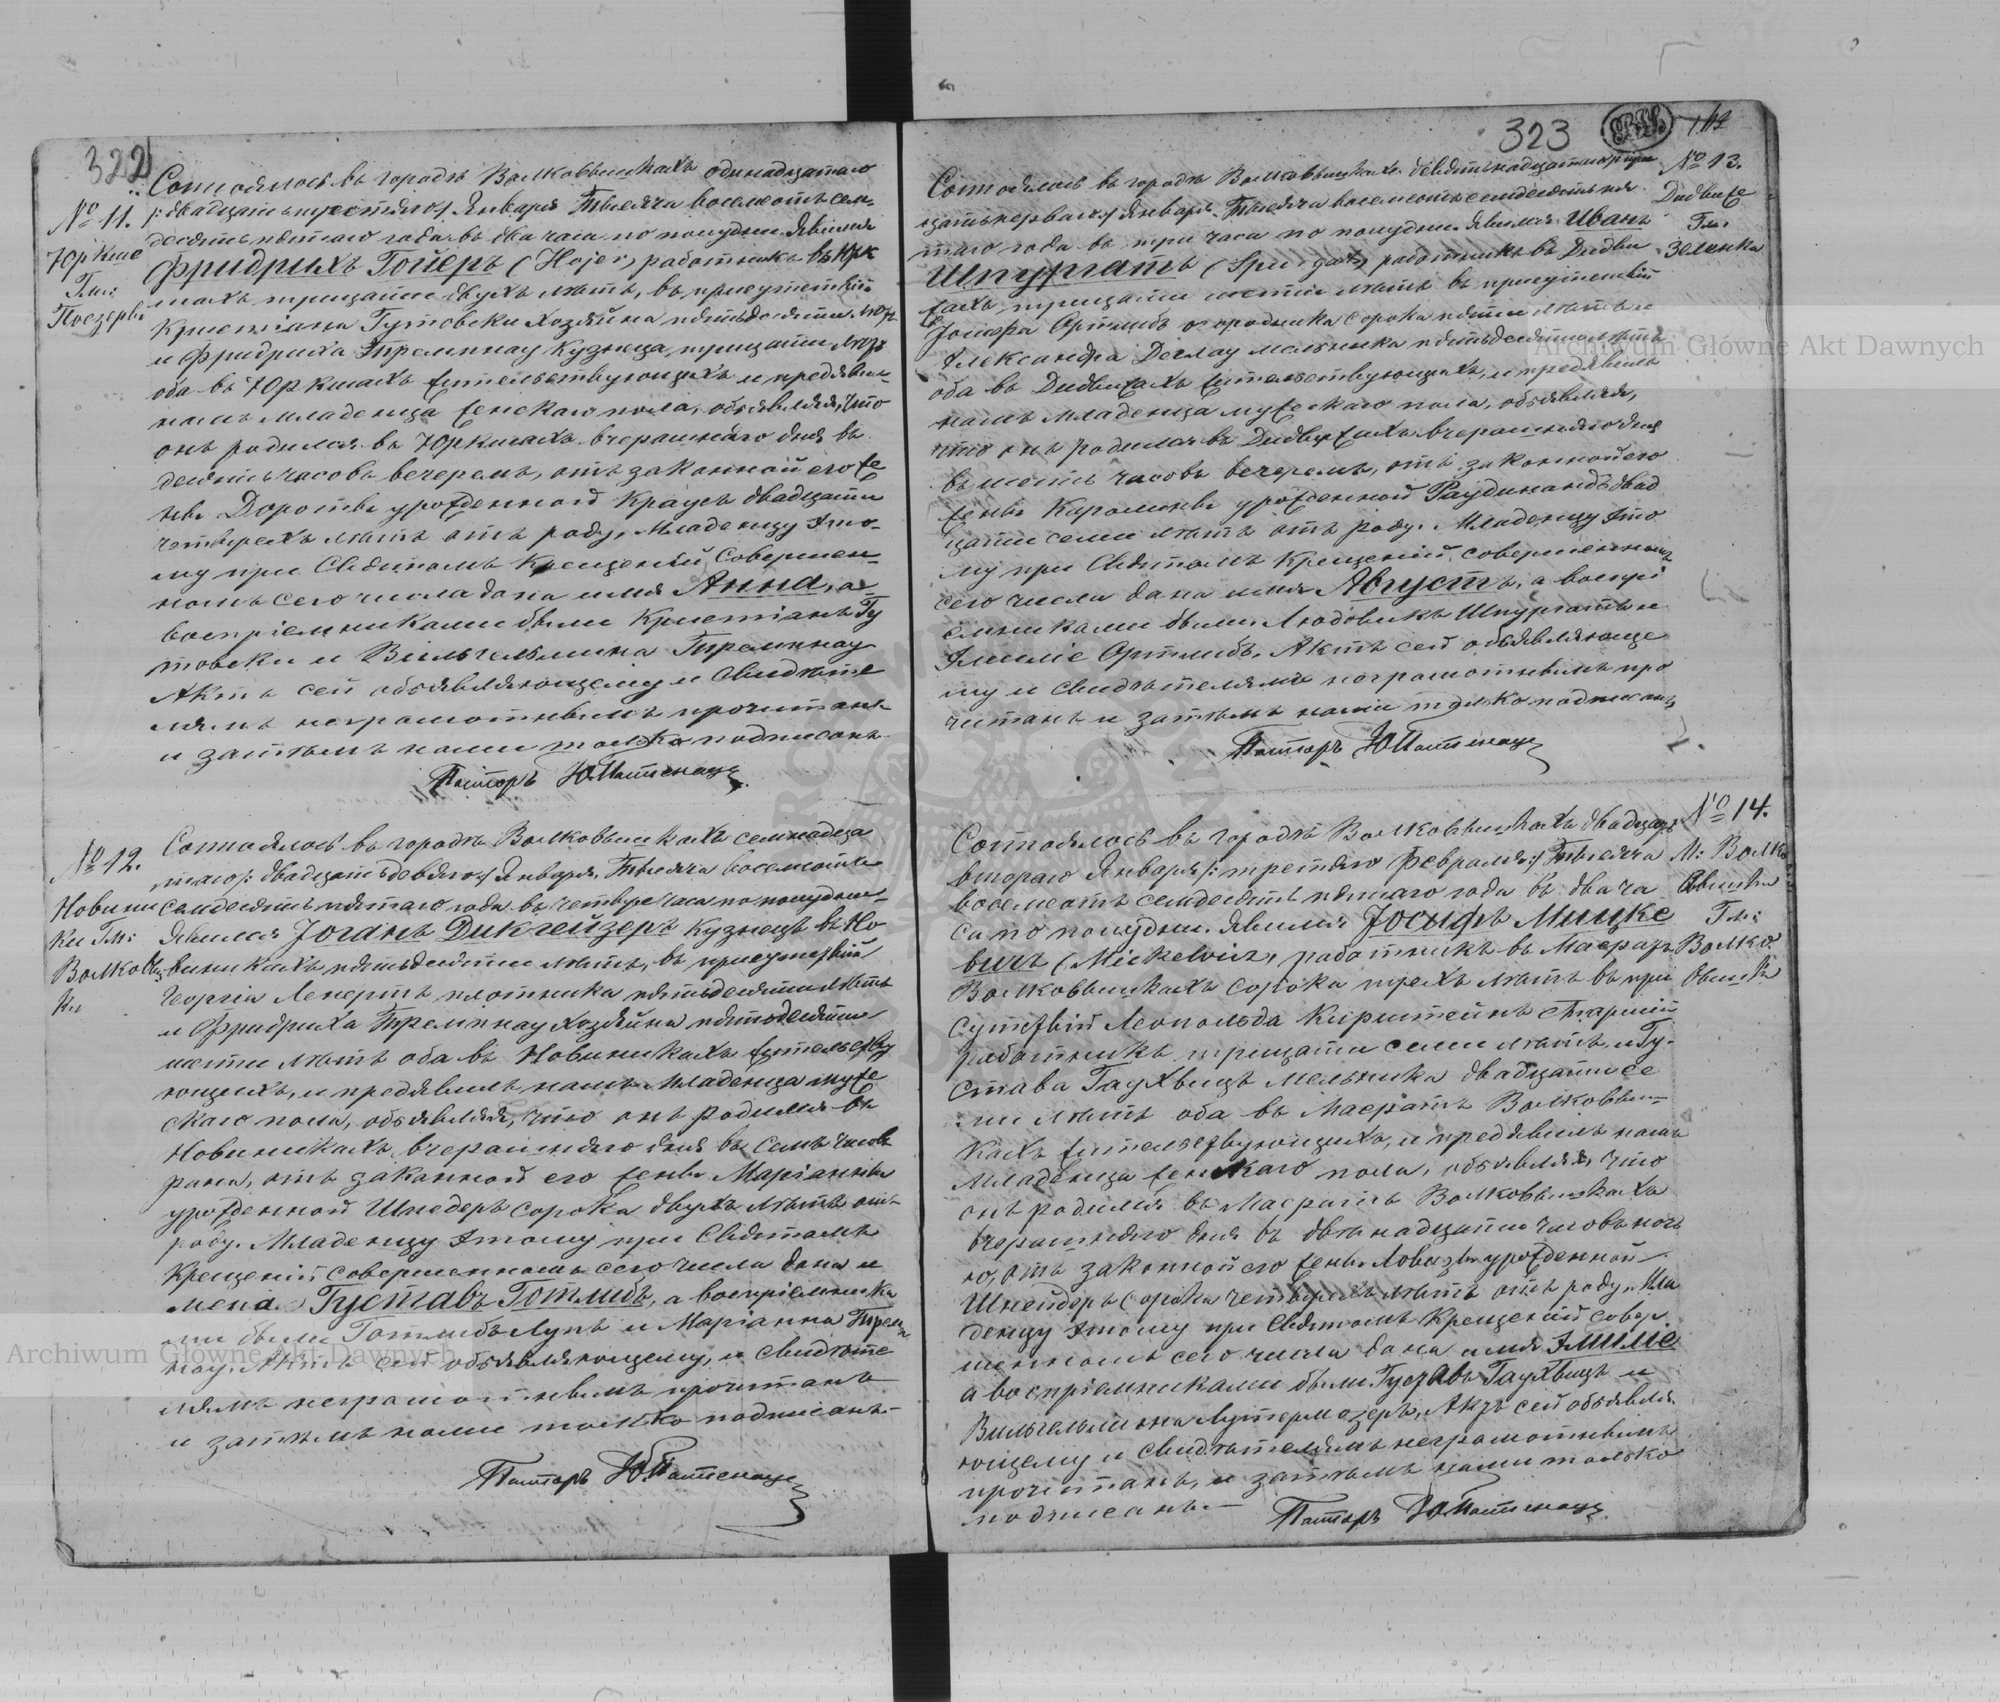 322
№ 11.
Юркше
Гми:
Поезеры
Состоялось въ городѣ Волковышкахъ одинадцатаго
/: двадцать шестаго :/ Января Тысяча восемсотъ сем-
десятъ пятаго года въ два часа по полудни. Явился
Фридрихъ Гойеръ (Hojer) работникъ въ Юрк
шахъ тридцати двухъ лѣтъ, въ присутствіи
Кристіана Гутовски хозяйна пятьдесяти лѣтъ
и Фридриха Тремпнау Кузнеца, тридцати лѣтъ
оба въ Юркшахъ жительствующихъ и предявилъ
намъ младенца женскаго пола, объявляя, что
онъ родился въ Юркшахъ вчерашняго дня въ
десять часовъ вечеромъ, отъ законной его же
ны Доротѣи урожденной Краусъ двадцати
четырехъ лѣтъ отъ роду, Младенцу это-
му при Святомъ Крещеніи совершен-
номъ сего числа дана имя Анна, а
воспріемниками были Кристіанъ Гу
товски и Вильгельмина Тремпнау
Актъ сей объявляющему и Свидѣте
лямъ неграмотнымъ прочитанъ
и затѣмъ нами только подписанъ.
Пасторъ
№ 12.
Новини
ки Гм:
Волковыш
ки
Состоялось въ городѣ Волковышкахъ семнадца
таго /: двадцать девятого :/ Января, Тысяча восемсотъ
семдесятъ пятаго года въ четыре часа по полудни
явился Іоганъ Дикгейзеръ кузнецъ въ Но
виникахъ пятьдесяти лѣтъ, въ присутствіи
Георгія Ленертъ плотника пятьдесяти лѣтъ
и Фридриха Тремпнау хозяйна пятьдесяти
шести лѣтъ оба въ Новиникахъ жительству
ющихъ, и предявилъ намъ младенца муже
скаго пола, объявляя, что онъ родился въ
Новиникахъ вчерашняго дня въ семь часовъ
рана, отъ законной его жены Маріанны
урожденной Шнедеръ сорока двухъ лѣтъ отъ
роду. Младенцу этому при Святомъ
Крещеніи совершенномъ сего числа дана и
мена Густавъ Готлибъ, а воспріемника
ми были Готлибъ Лупъ и Маріанна Тремп
нау. Актъ сей объявляющему, и Свидѣте
лямъ неграмотнымъ прочитанъ
и затѣмъ нами только подписанъ.
Пасторъ
323
163
№ 13.
Дидвиже
Гм:
Зеленка
Состоялось въ городѣ Волковышкахъ девятьнадцатаго /: три
цать перваго :/ Января Тысяча восемсотъ семдесятъ пя
таго года въ три часа по полудни явился Иванъ
Шпургатъ (Spurgat) работникъ въ Дидви
жахъ тридцати шести лѣтъ въ присутствіи
Іосифа Ортлибъ огородника сорока пяти лѣтъ и
Александра Деглау мельника пятьдесяти лѣтъ
оба въ Дидвижахъ жительствующихъ, и предявилъ
намъ младенца мужескаго пола, объявляя,
что онъ родился въ Дидвижахъ вчерашняго дня
въ шесть часовъ вечеромъ, отъ законной его
жены Каролины урожденной Раудинандъ двад
цати семи лѣтъ отъ роду. Младенцу это
му при Святомъ Крещеніи совершенномъ
сего числа дана имя Августъ, а воспрі
емниками были Людовикъ Шпургатъ и
Эмиліе Ортлибъ. Актъ сей объявляюще
му и свидѣтелямъ неграмотнымъ про
читанъ и затѣмъ нами только подписанъ
Пасторъ
№ 14.
М: Волко
вышки
Гм:
Волко
вышк
Состоялось въ городѣ Волковышкахъ двадцать
втораго Января /: третьяго Февраля :/ Тысяча
восемсотъ семдесятъ пятаго года въ два ча
са по полудни. Явился Іосифъ Мицке
вичъ (Mickewicz) работникъ въ Маератѣ
Волковышкахъ сорока трехъ лѣтъ въ при
сутствіи Леопольда Кирштейнъ старшій
работникъ тридцати семи лѣтъ, и Гу-
става Гаухвицъ Мельника двадцати се
ми лѣтъ оба въ Маератѣ Волковыш
кахъ жительствующихъ, и предявилъ намъ
младенца женскаго пола, объявляя, что
онъ родился въ Маератѣ Волковышкахъ
вчерашняго дня въ двѣнадцати часовъ ноч
ю, отъ законной его жены Ловизы урожденной
Шнейдеръ сорока четырехъ лѣтъ отъ роду. Мла
денцу этому при Святомъ Крещеніи совер
шенномъ сего числа дана имя Эмиліе
а воспріемниками были Густавъ Гаухвицъ и
Вильгельмина Лутермозеръ, Актъ сей объявля
ющему и свидѣтелямъ неграмотнымъ
прочитанъ, и затѣмъ нами только
подписанъ.
Пасторъ
Archiwum Główne Akt Dawnych
Archiwum Główne Akt Dawnych